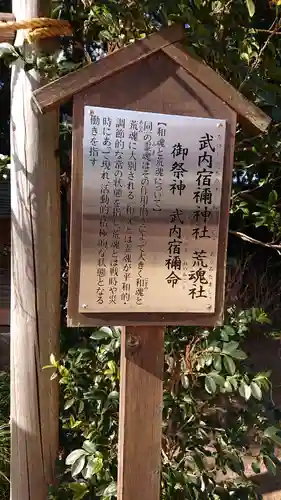 武内宿禰神社 荒魂社
御祭神 武内宿禰命
【和魂と荒魂について】
同一の霊魂はその作用面によって大きく和魂と
荒魂に大別される 和魂とは霊魂が平和的・
調節的な常の状態を指し荒魂とは戦時や災
時にあって現れ、活動的積極的な状態となる
働きを指す